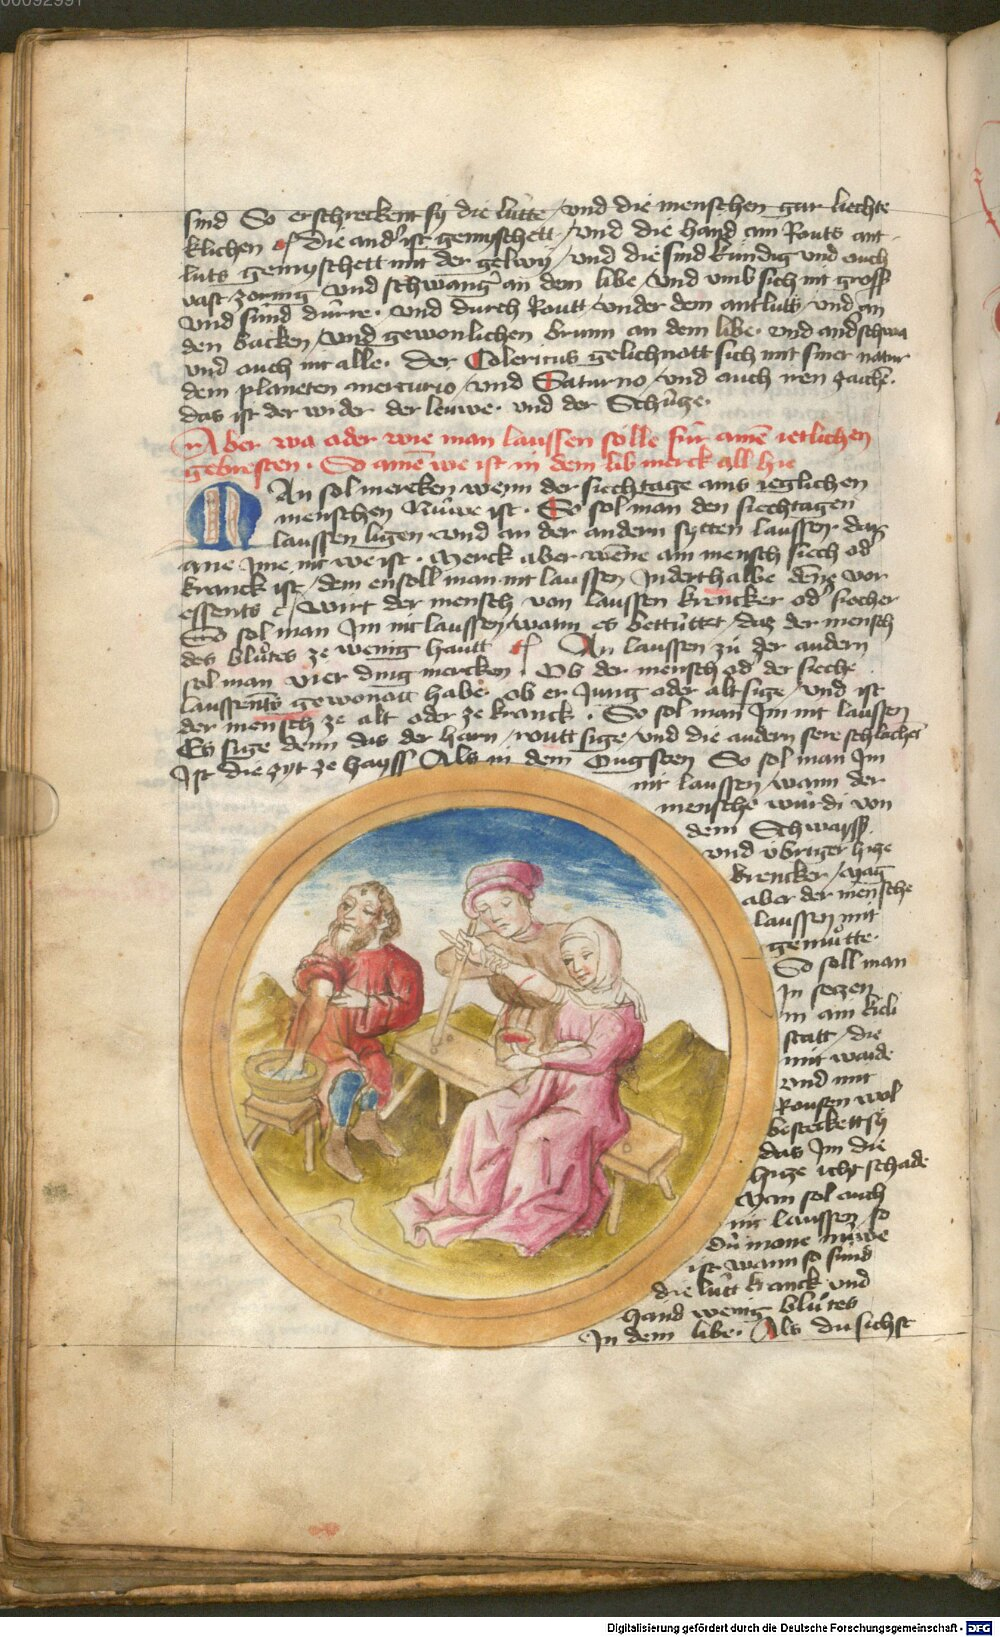 00092991
sind So erschreckent sy die lütte / vnd die menschen gar liechte
klichen Die and' ist gemyschett / vnd die hand ain Routs ant
luts gemyschett mit der gelwy / vnd die sind kündig vnd ouch
vast zornig vnd schwang' an dem libe / vnd vmb sich nit gross
vnd sind dürre · vnd durch Routt vnder dem antlutt / vnd an
den backen / vnd gewonlichen brunn an dem libe · vnd
vnd ouch nit alle · Der Colericus gelichnott sich mit siner natur
dem planeten mercurio / vnd Saturno / vnd ouch iren zaichē ·
das ist der wider der leuwe · vnd der Schücze ·
Aber wa oder wie man laussen sölle für ainē ietlichen
gebresten · So ainē we ist in dem lib merck all hie
MAn sol mercken wenn der siechtage ains ieglichen
menschen Nüwe ist · So sol man den siechtagen
laussen ligen vnd an der andern sytten laussen · daz
ane Ime nit we ist · Merck aber wēne ain mensch siech od'
kranck ist / dem ensoll man nit laussen Inderthalbe vor
essents e / wirt der mensch von laussen krencker od' siecher
So sol man Im nit laussen / wann es bettüttet / daz der mensch
des blůtes ze wenig hautt An laussen zů der andern
sol man vier ding mercken · Ob der mensch od' der sieche
laussents gewonatt habe · ob er Jung oder alt sige / vnd ist
der mensch ze alt oder ze kranck · So sol man Im nit laussen
Es sige denn das der harn / routt sige / vnd die andern sere schlachēt
Ist die zyt ze hayss Als in dem Ougsten So sol man Im
nit laussen / wann der
menschē würdi von
dem Schwayss
vnd übriger hicze
krencker / Mag
aber der mensche
laussen mit
gemůtte ·
So soll man
In seczen
in ain
statt / die
mit waide
vnd mit
Rousen wol
besteckett sy
das Im die
hicze icht schade
Man sol ouch
nit laussen so
dü mone nüwe
ist wann so sind
die lütt kranck vnd
hand wenig blůtes
In dem libe · Als du sichst
Digitalisierung gefördert durch die Deutsche Forschungsgemeinschaft - DFG